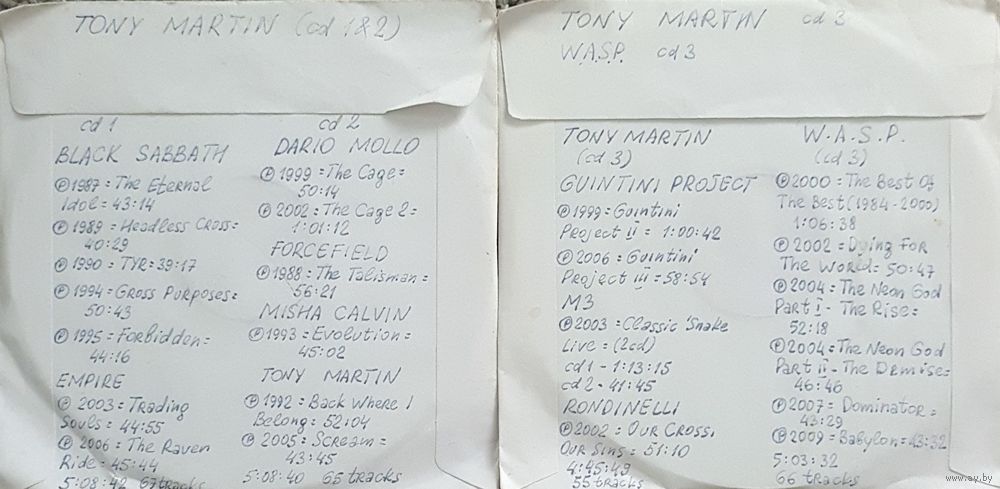 TONY MARTIN (cd 1&2)
cd 1
BLACK SABBATH
℗ 1987 = The Eternal
Idol = 43:14
℗ 1989 = Headless Cross =
40:29
℗ 1990 = TYR = 39:17
℗ 1994 = Gross Purposes =
50:43
℗ 1995 = Forbidden =
44:16
EMPIRE
℗ 2003 = Trading
Souls = 44:55
℗ 2006 = The Raven
Ride = 45:44
5:08:42 67 tracks
cd 2
DARIO MOLLO
℗ 1999 = The Cage =
50:14
℗ 2002 = The Cage 2 =
1:01:12
FORCEFIELD
℗ 1988 = The Talisman =
56:21
MISHA CALVIN
℗ 1993 = Evolution =
45:02
TONY MARTIN
℗ 1992 = Back Where I
Belong = 52:04
℗ 2005 = Scream =
43:45
5:08:40 65 tracks
TONY MARTIN cd 3
W.A.S.P. cd 3
TONY MARTIN
(cd 3)
GUINTINI PROJECT
℗ 1999 = Guintini
Project II = 1:00:42
℗ 2006 = Guintini
Project III = 58:54
M3
℗ 2003 = Classic 'Snake
Live = (2cd)
cd 1 - 1:13:15
cd 2 - 41:45
RONDINELLI
℗ 2002 = Our Cross,
Our Sins = 51:10
4:45:49
55 tracks
W.A.S.P.
(cd 3)
℗ 2000 = The Best Of
The Best (1984-2000)
1:06:38
℗ 2002 = Dying For
The World = 50:47
℗ 2004 = The Neon God
Part I - The Rise =
52:18
℗ 2004 = The Neon God
Part II - The Demise =
46:46
℗ 2007 = Dominator =
43:29
℗ 2009 = Babylon = 43:32
5:03:32
66 tracks
www.ay.by